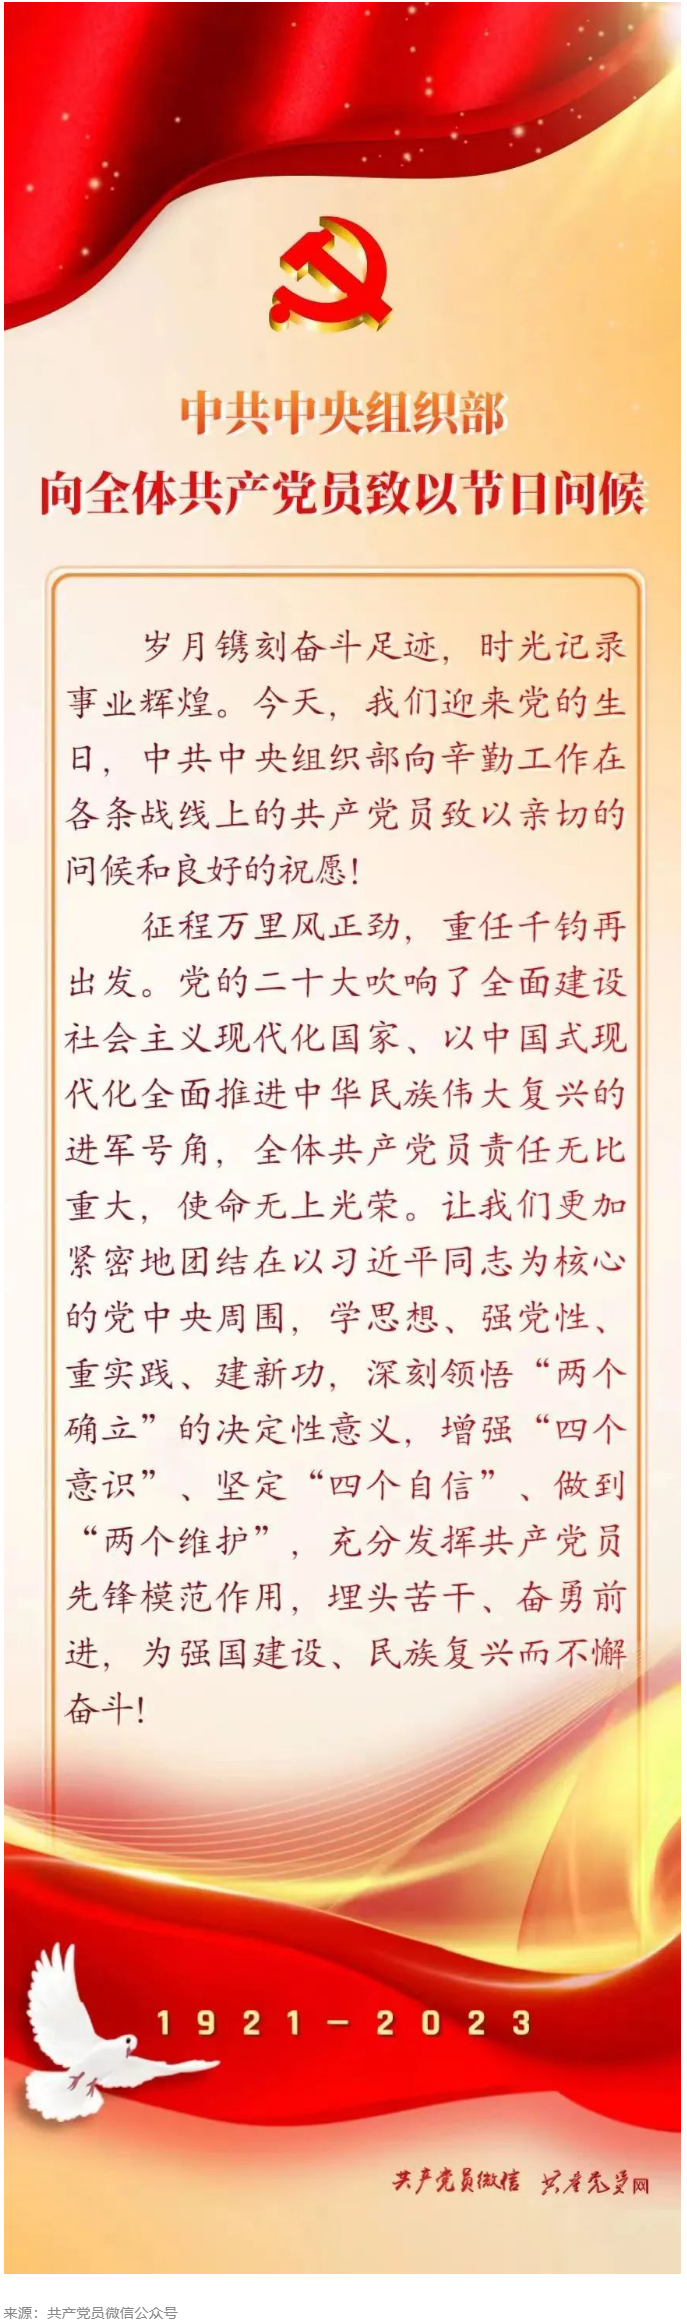 中共中央组织部
向全体共产党员致以节日问候
岁月镌刻奋斗足迹，时光记录
事业辉煌。今天，我们迎来党的生
日，中共中央组织部向辛勤工作在
各条战线上的共产党员致以亲切的
问候和良好的祝愿！
征程万里风正劲，重任千钧再
出发。党的二十大吹响了全面建设
社会主义现代化国家、以中国式现
代化全面推进中华民族伟大复兴的
进军号角，全体共产党员责任无比
重大，使命无上光荣。让我们更加
紧密地团结在以习近平同志为核心
的党中央周围，学思想、强党性、
重实践、建新功，深刻领悟“两个
确立”的决定性意义，增强“四个
意识”、坚定“四个自信”、做到
“两个维护”，充分发挥共产党员
先锋模范作用，埋头苦干、奋勇前
进，为强国建设、民族复兴而不懈
奋斗！
1921—2023
共产党员微信 共产党员网
来源：共产党员微信公众号